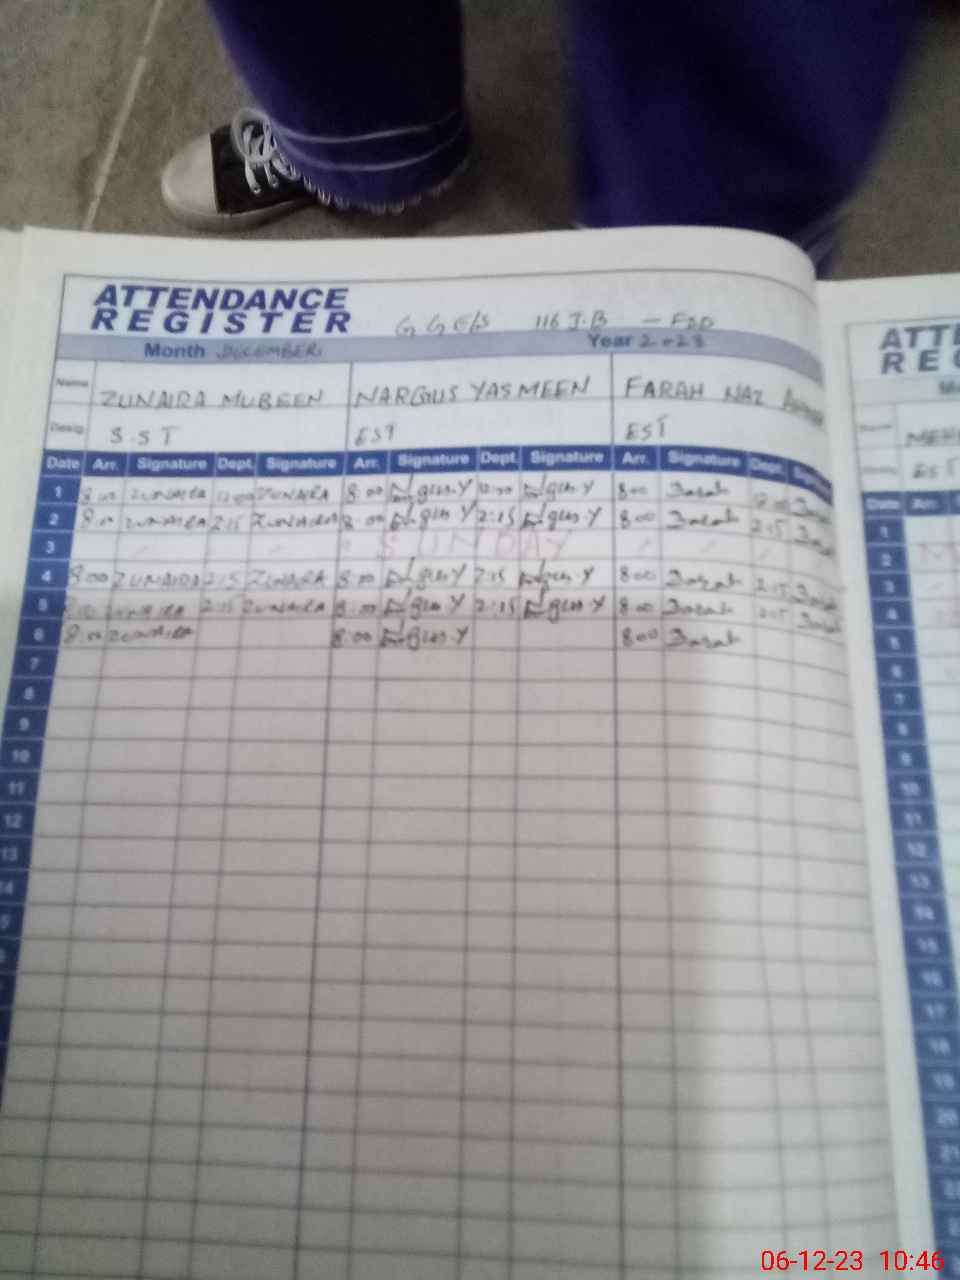 ATTENDANCE
REGISTER
G G E/S 116 J.B - FSD
Month DECEMBER Year 2023
Name ZUNAIRA MUBEEN NARGUS YASMEEN FARAH NAZ
Desig S.S T EST EST
Date Arr. Signature Dept. Signature Arr. Signature Dept. Signature Arr. Signature Dept.
1 8:00 ZUNAIRA 12:00 ZUNAIRA 8:00 12:00 8:00 Farah 12:00 Farah
2 8:00 ZUNAIRA 2:15 ZUNAIRA 8:00 2:15 8:00 Farah 2:15 Farah
3 SUNDAY
4 8:00 ZUNAIRA 2:15 ZUNAIRA 8:00 2:15 8:00 Farah 2:15 Farah
5 8:00 ZUNAIRA 2:15 ZUNAIRA 8:00 2:15 8:00 Farah 2:15 Farah
6 8:00 ZUNAIRA 8:00 8:00 Farah
7
8
9
10
11
12
13
14
ATT
REG
EST
Date
1
2
3
4
5
6
7
8
9
10
11
12
13
14
15
16
17
18
19
20
21
06-12-23 10:46